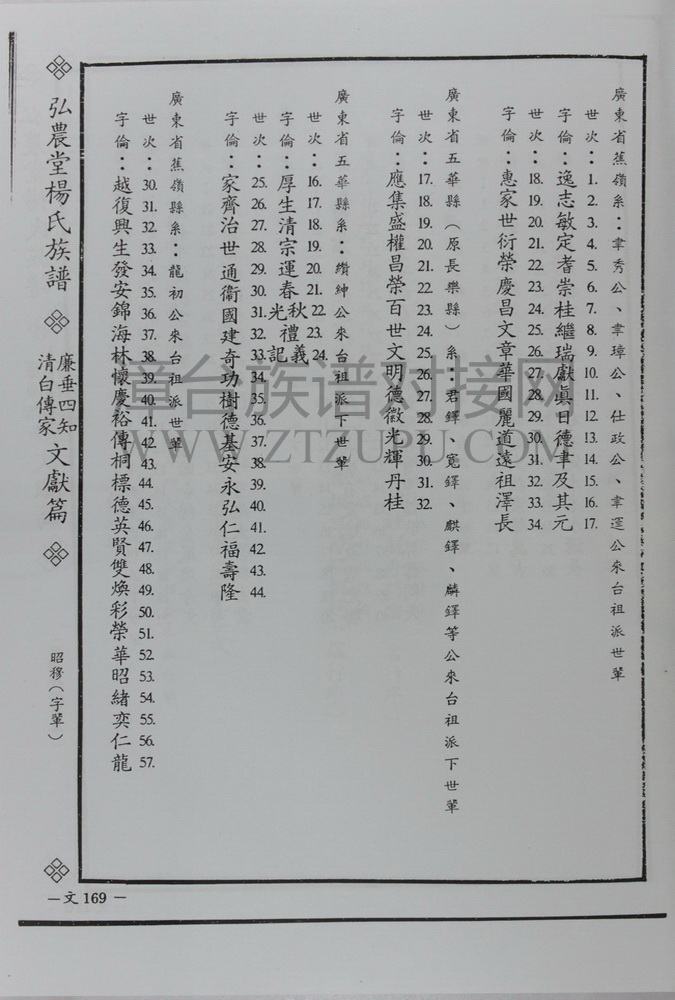 廣東省蕉嶺縣系：聿秀公、聿璋公、仕政公、聿運公來台祖派世輩
世次：1. 2. 3. 4. 5. 6. 7. 8. 9. 10. 11. 12. 13. 14. 15. 16. 17.
字倫：逸志敏定耆崇桂繼瑞獻眞日德聿及其元
世次：18. 19. 20. 21. 22. 23. 24. 25. 26. 27. 28. 29. 30. 31. 32. 33. 34.
字倫：惠家世衍榮慶昌文章華國麗道遠祖澤長
廣東省五華縣（原長樂縣）系：君鐸、寬鐸、麒鐸、麟鐸等公來台祖派下世輩
世次：17. 18. 19. 20. 21. 22. 23. 24. 25. 26. 27. 28. 29. 30. 31. 32.
字倫：應集盛權昌榮百世文明德徵光輝丹桂
廣東省五華縣系：纘紳公來台祖派下世輩
世次：16. 17. 18. 19. 20. 21. 22. 23. 24.
字倫：厚生清宗運春秋禮義
光記
世次：25. 26. 27. 28. 29. 30. 31. 32. 33. 34. 35. 36. 37. 38. 39. 40. 41. 42. 43. 44.
字倫：家齊治世通衢國建奇功樹德基安永弘仁福壽隆
廣東省蕉嶺縣系：龍初公來台祖派世輩
世次：30. 31. 32. 33. 34. 35. 36. 37. 38. 39. 40. 41. 42. 43. 44. 45. 46. 47. 48. 49. 50. 51. 52. 53. 54. 55. 56. 57.
字倫：越復興生發安錦海林懷慶裕傳桐標德英賢雙煥彩榮華昭緒奕仁龍
弘農堂楊氏族譜
廉垂四知
清白傳家
文獻篇
昭穆（字輩）
—文 169 —
章台族谱对接网
WWW.ZTZUPU.COM